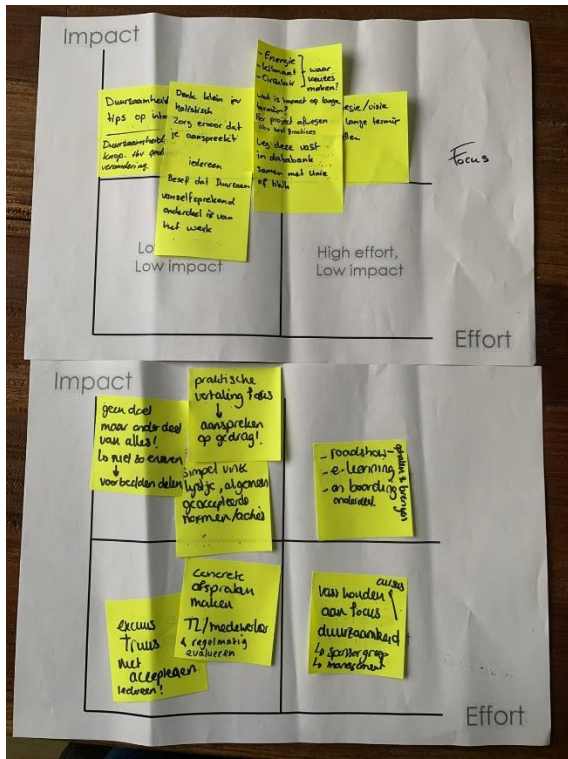 Impact
Duurzaamheid
tips op
Duurzaamheid
knop. tbv
verandering.
Denk klein iv
holistisch
Zorg ervoor dat
je aanspreekt
iedereen
Besef dat Duurzaam
vanzelfsprekend
onderdeel is van
het werk
- Energie
- klimaat
- Circulair
waar
keuzes
maken?
wat is impact op lange
termijn?
Per project afwegen
tbv best practices
Leg deze vast
in databank
Samen met Unie
of HWH
egie/visie
lange termijn
llen
Focus
Lo
Low impact
High effort,
Low impact
Effort
Impact
geen doel
maar onderdeel
van alles!
↳ niet zo ervaren
↓
voorbeelden delen
praktische
vertaling focus
↓
aanspreken
op gedrag!
simpel vink
lijstje, algemeen
geaccepteerde
normen/acties
- roadshow
- e-learning
- on boarding
onderdeel.
ophalen & brengen
excuus
Truus
niet
accepteren
Iedereen!
concrete
afspraken
maken
TL/medewerker
& regelmatig
evalueren
cursus
vast houden
aan focus
duurzaamheid
↳ sponsorgroep
↳ management
Effort